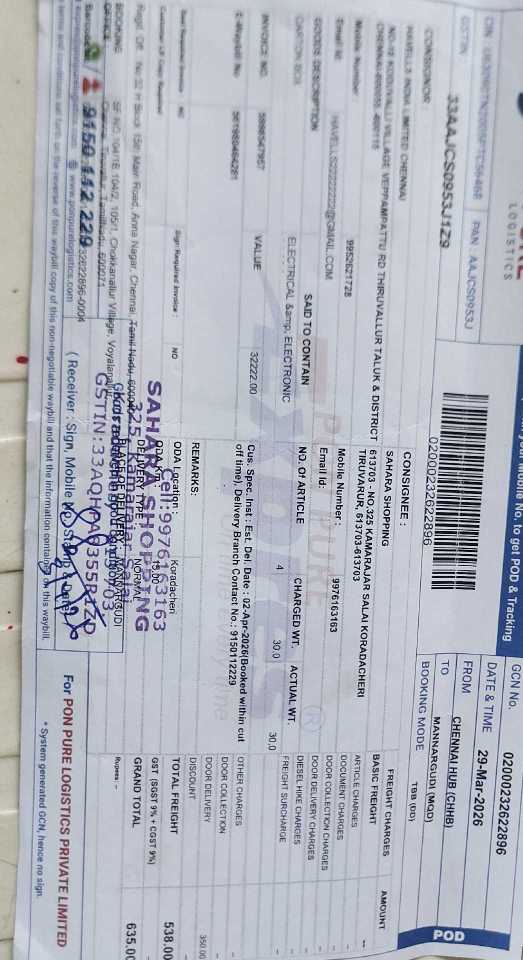 LOGISTICS
your Mobile No. to get POD & Tracking
PAN : AAJCS0953J
GSTIN : 33AAJCS0953J1Z9
02000232622896
GCN No. 02000232622896
DATE & TIME 29-Mar-2026
FROM CHENNAI HUB (CHHB)
TO MANNARGUDI (MGD)
BOOKING MODE TBB (DD)
POD
CONSIGNOR :
HAVELLS INDIA LIMITED CHENNAI
NO-16 KODUVALLI VILLAGE, VEPPAMPATTU RD THIRUVALLUR TALUK & DISTRICT
Mobile Number : 9952621728
Email Id : HAVELLS22222222@GMAIL.COM
CONSIGNEE :
SAHARA SHOPPING
613703 - NO,325 KAMARAJAR SALAI KORADACHERI
TIRUVARUR, 613703-613703
Mobile Number : 9976163163
Email Id:
GOODS DESCRIPTION SAID TO CONTAIN NO. OF ARTICLE CHARGED WT. ACTUAL WT.
CARTON BOX ELECTRICAL &amp; ELECTRONIC 4 30.0 30.0
INVOICE NO. VALUE
5998547957 32222.00
E-Waybill No 561980464281
Cus. Spec. Inst : Est. Del. Date : 02-Apr-2026(Booked within cut
off time), Delivery Branch Contact No : 9150112229
REMARKS:
Sign Required Invoice : NO
ODA Location : Koradacheri
ODA Km :
DELIVERY TYPE : NORMAL
PLACE OF DELIVERY : MANNARGUDI
FREIGHT CHARGES AMOUNT
BASIC FREIGHT --
ARTICLE CHARGES -
DOCUMENT CHARGES -
DOOR COLLECTION CHARGES -
DOOR DELIVERY CHARGES -
DIESEL HIKE CHARGES -
FREIGHT SURCHARGE -
OTHER CHARGES
DOOR COLLECTION
DOOR DELIVERY 350.00
DISCOUNT
TOTAL FREIGHT 538.00
GST (SGST 9% + CGST 9%)
GRAND TOTAL 635.00
Rupees --
Regd. Off : No.32 H Block 15th Main Road, Anna Nagar, Chennai, Tamil Nadu, 600040
BOOKING OFFICE : SF NO.104/1B, 104/2, 105/1, Chokkanallur Village, Voyalanallur,
Chennai, Tiruvallur, Tamilnadu, 600071
Cell:9976163163
SAHARA SHOPPING
325, Kamarajar Salai
GSTIN:33AQHPA0355R1ZD
9150 112 229
Barcode
32622896-0004
www.ponpurelogistics.com
( Receiver : Sign, Mobile
terms and conditions set forth on the reverse of this waybill copy of this non-negotiable waybill and that the information contained on this waybill.
For PON PURE LOGISTICS PRIVATE LIMITED
* System generated GCN, hence no sign.